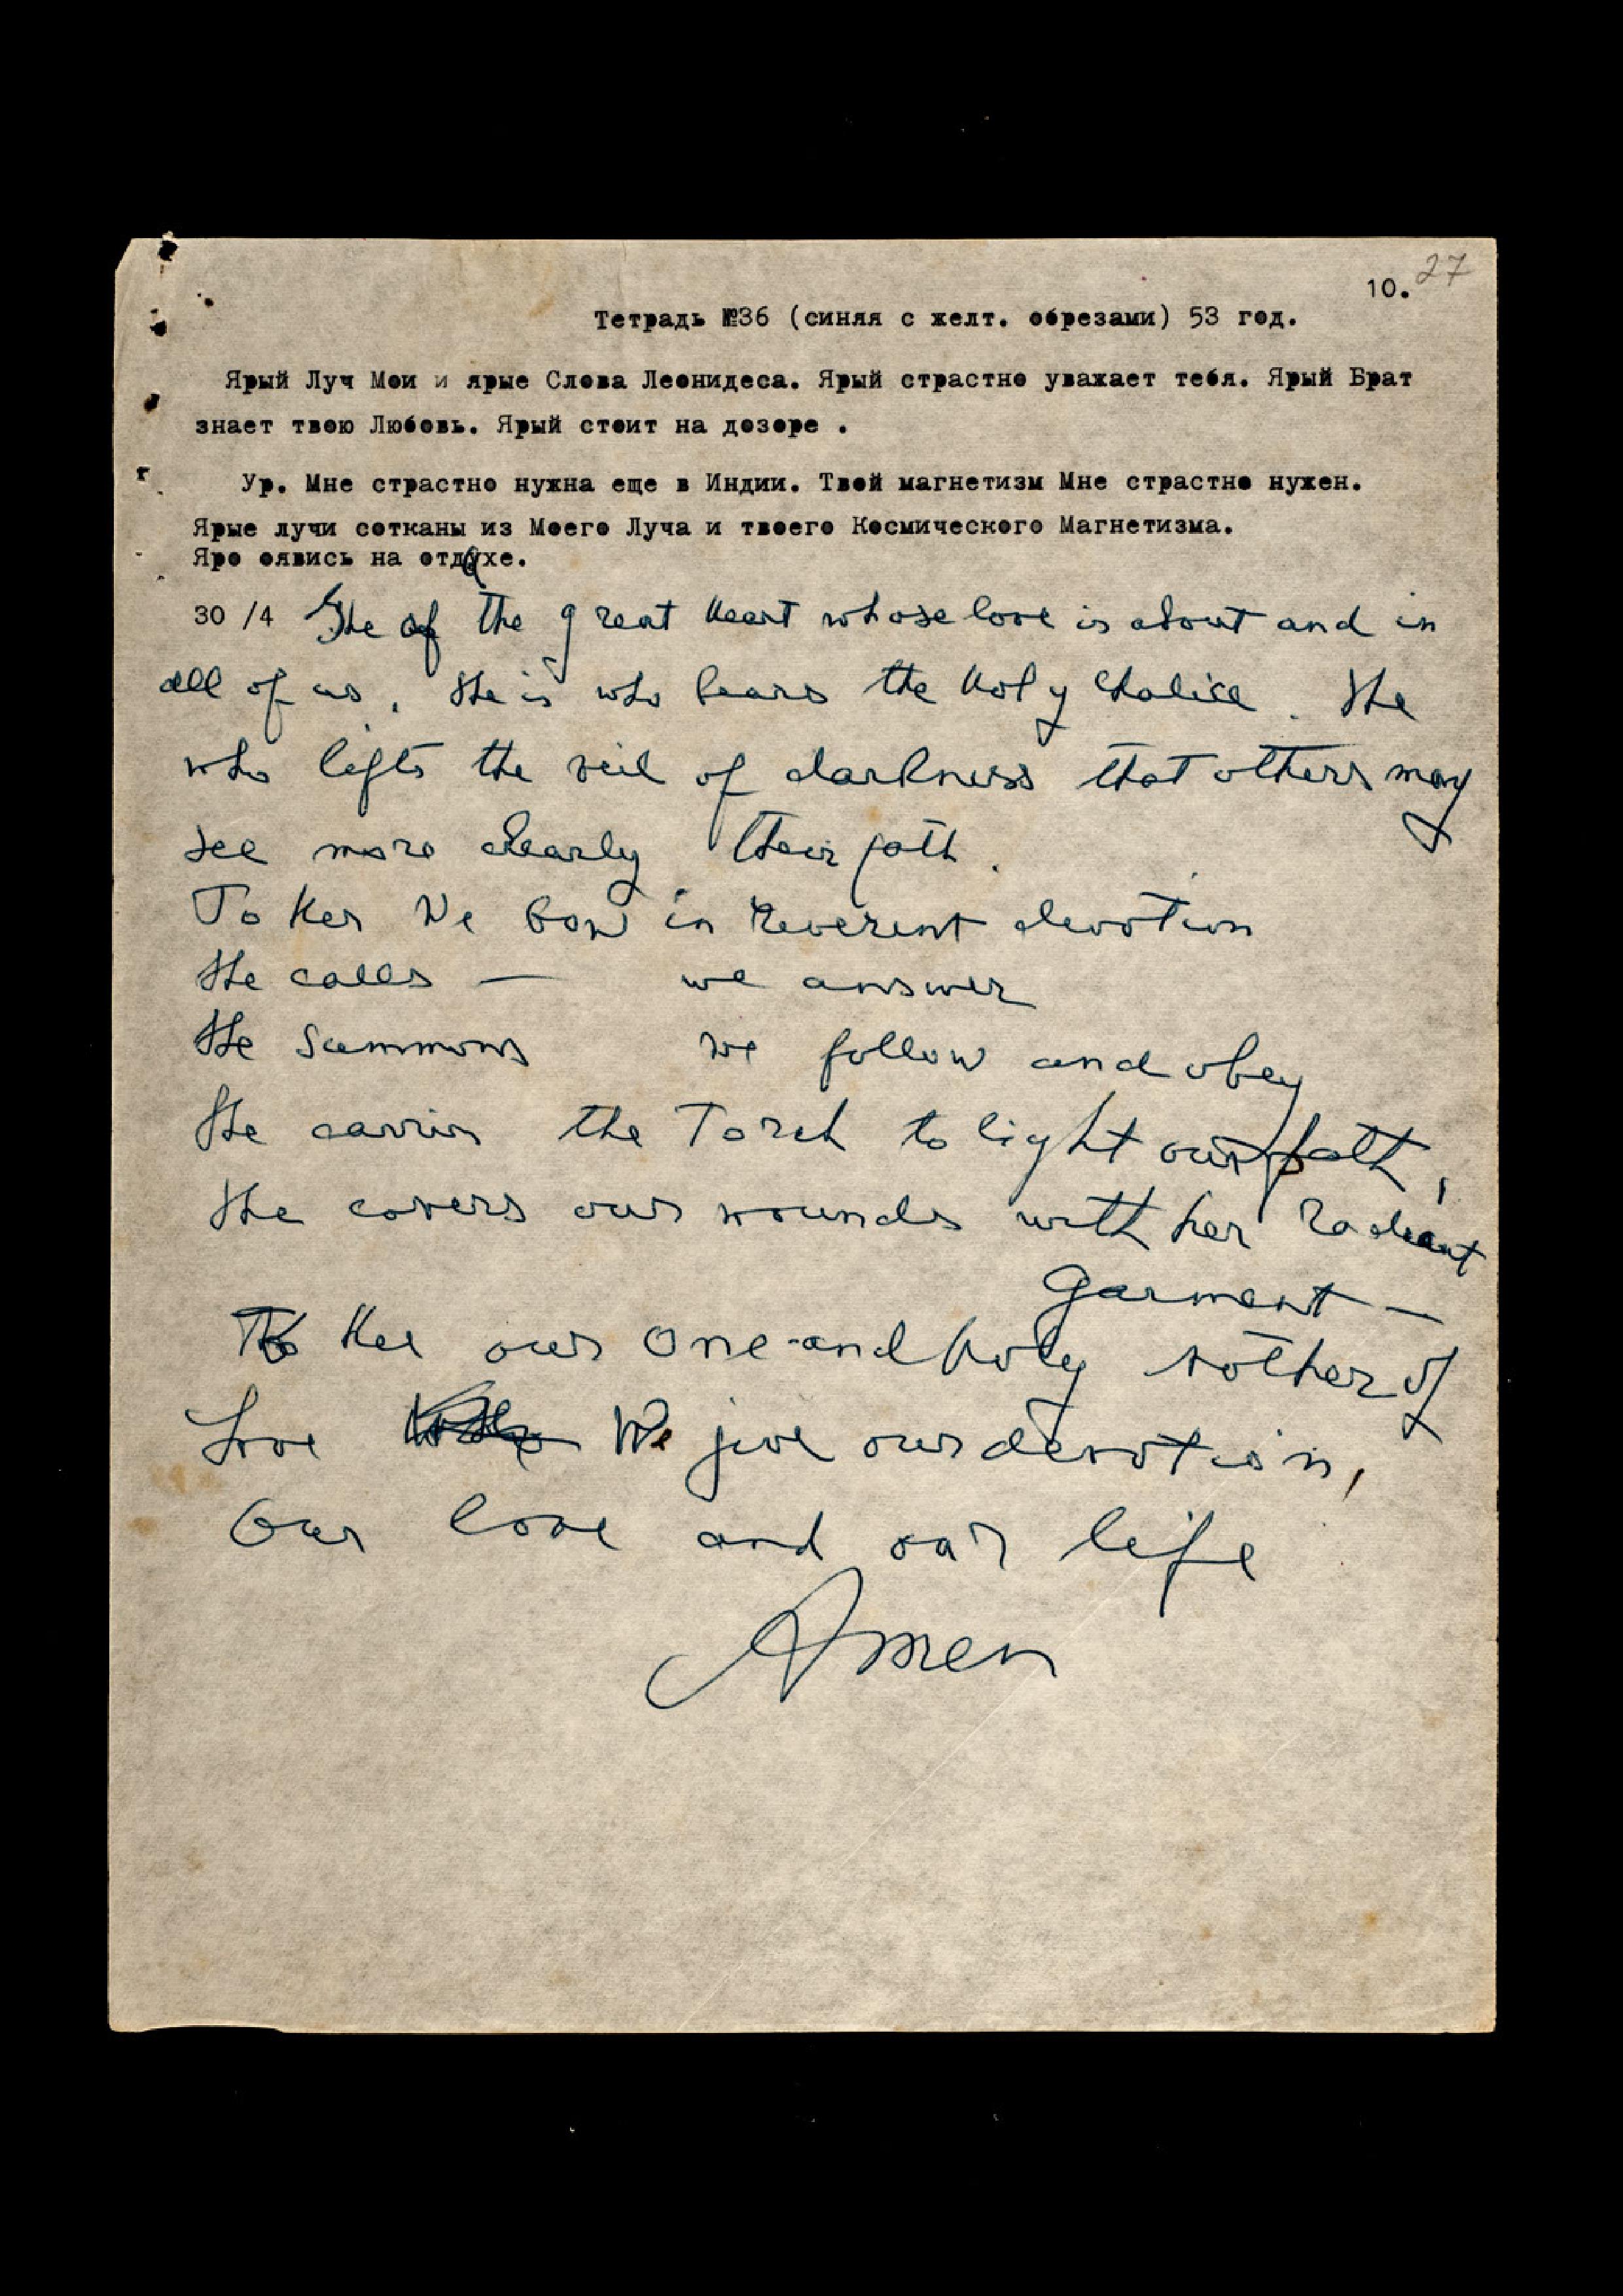 10. 27
Тетрадь №36 (синяя с желт. обрезами) 53 год.
Ярый Луч Мои и ярые Слова Леонидеса. Ярый страстно уважает тебя. Ярый Брат
знает твою Любовь. Ярый стоит на дозоре .
Ур. Мне страстно нужна еще в Индии. Твой магнетизм Мне страстно нужен.
Ярые лучи сотканы из Моего Луча и твоего Космического Магнетизма.
Яро оявись на отдыхе.
30 /4 She of the great Heart whose love is about and in
all of us. She is who bears the Holy Chalice. She
who lifts the veil of darkness that others may
see more clearly their path.
To Her We bow in reverent devotion
She calls — we answer
She summons we follow and obey
She carries the Torch to light our path,
She covers our wounds with her radiant
garment —
To Her our One and holy Mother of
Love We give our devotion,
Our love and our life
Amen